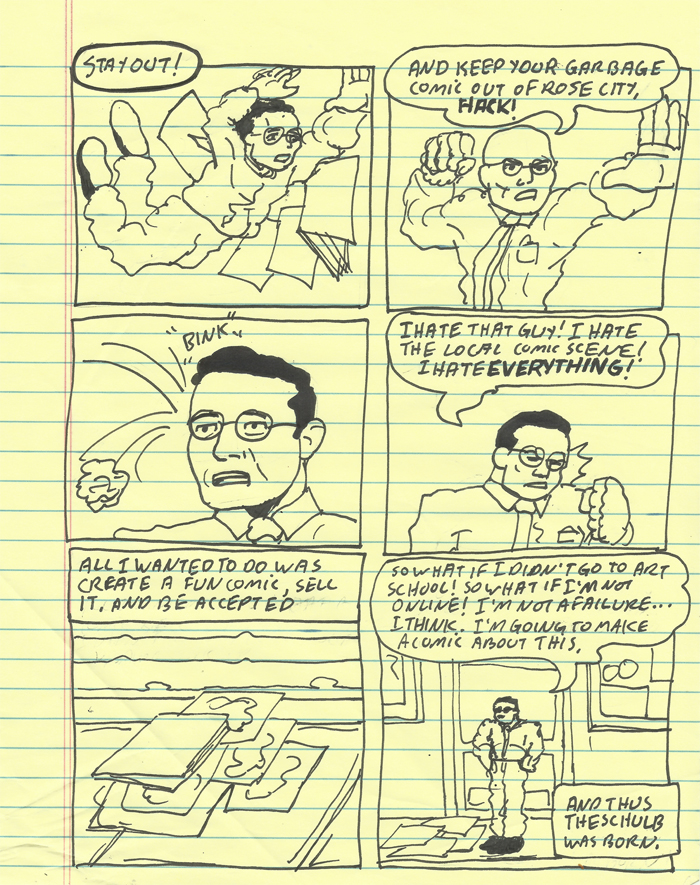 STAY OUT!
AND KEEP YOUR GARBAGE
COMIC OUT OF ROSE CITY,
HACK!
"BINK"
I HATE THAT GUY! I HATE
THE LOCAL COMIC SCENE!
I HATE EVERYTHING!
ALL I WANTED TO DO WAS
CREATE A FUN COMIC, SELL
IT, AND BE ACCEPTED
SO WHAT IF I DIDN'T GO TO ART
SCHOOL! SO WHAT IF I'M NOT
ONLINE! I'M NOT A FAILURE...
I THINK. I'M GOING TO MAKE
A COMIC ABOUT THIS.
AND THUS
THE SCHULB
WAS BORN.